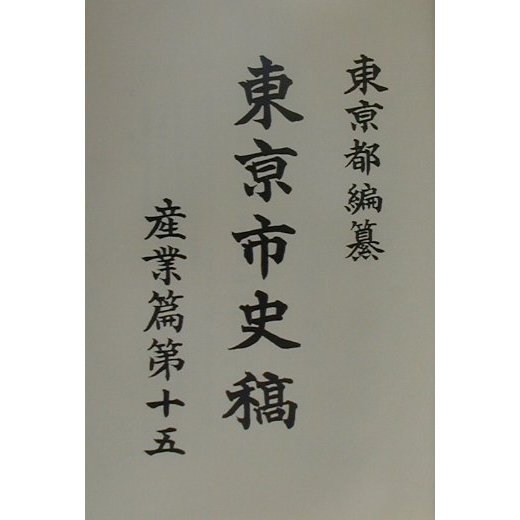 東亰都編纂
東亰市史稿
産業篇第十五